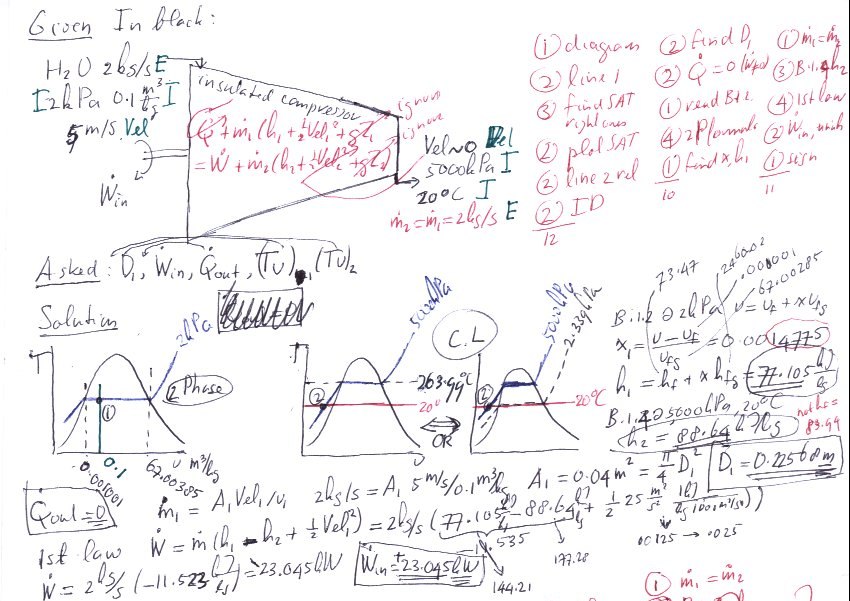 Given In black:
H2O 2kg/s E
I 2kPa 0.1 m³/kg I
5 m/s Vel
Ẇin
insulated compressor
Q̇ + ṁ1(h1 + ½Vel1² + gZ1)
= Ẇ + ṁ2(h2 + ½Vel2² + gZ2)
ignore
ignore
Vel~0 Vel
5000kPa I
20°C I
ṁ2 = ṁ1 = 2kg/s E
① diagram
② line 1
③ find SAT
right ones
② plot SAT
② line 2 rel
② ID
12
② find D1
② Q̇ = 0
① read B1.2
④ 2P formula
① find x, h1
10
① ṁ1 = ṁ2
③ B.1.4 h2
④ 1st law
② Ẇin, which
① sign
11
Asked: D1, Ẇin, Q̇out, (Tv)1, (Tv)2
Solution
T
2kPa
2 Phase
①
0.001001
0.1
67.00385
v m³/kg
T
5000kPa
②
263.99°C
20°
v
C.L
OR
5000kPa
2.339kPa
②
20°C
73.47
2460.02
.001001
67.00285
B.1.2 @ 2kPa v = vf + x vfg
x1 = v - vf / vfg = 0.0014775
h1 = hf + x hfg = 77.105 kJ/kg
B.1.4 @ 5000kPa, 20°C
h2 = 88.64 kJ/kg
not hf =
83.94
Q̇out = 0
ṁ1 = A1 Vel1/v1 2kg/s = A1 5 m/s/0.1 m³/kg A1 = 0.04 m² = π/4 D1² D1 = 0.22568 m
1st law Ẇ = ṁ(h1 - h2 + ½ Vel1²) = 2kg/s (77.105 kJ/kg - 88.64 kJ/kg + ½ 25 m²/s² kJ/kg /1000 m²/s²)
-11.535
.00125 → .0125
Ẇ = 2 kg/s (-11.523 kJ/kg) = 23.045kW
Ẇin = +23.045kW
144.21
177.28
① ṁ1 = ṁ2